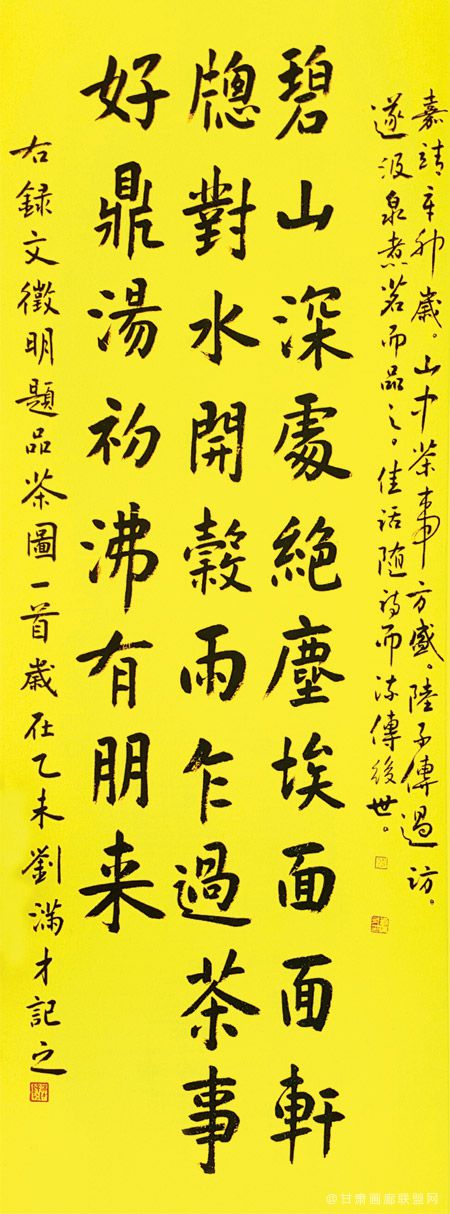 嘉靖辛卯歲。山中茶事方盛。陸子傳過訪。
遂汲泉煮茗而品之。佳話随詩而流傳後世。
碧山深處絶塵埃面面軒
牎對水開穀雨乍過茶事
好鼎湯初沸有朋来
右録文徵明題品茶圖一首歲在乙未劉滿才記之
@甘肃画廊联盟网